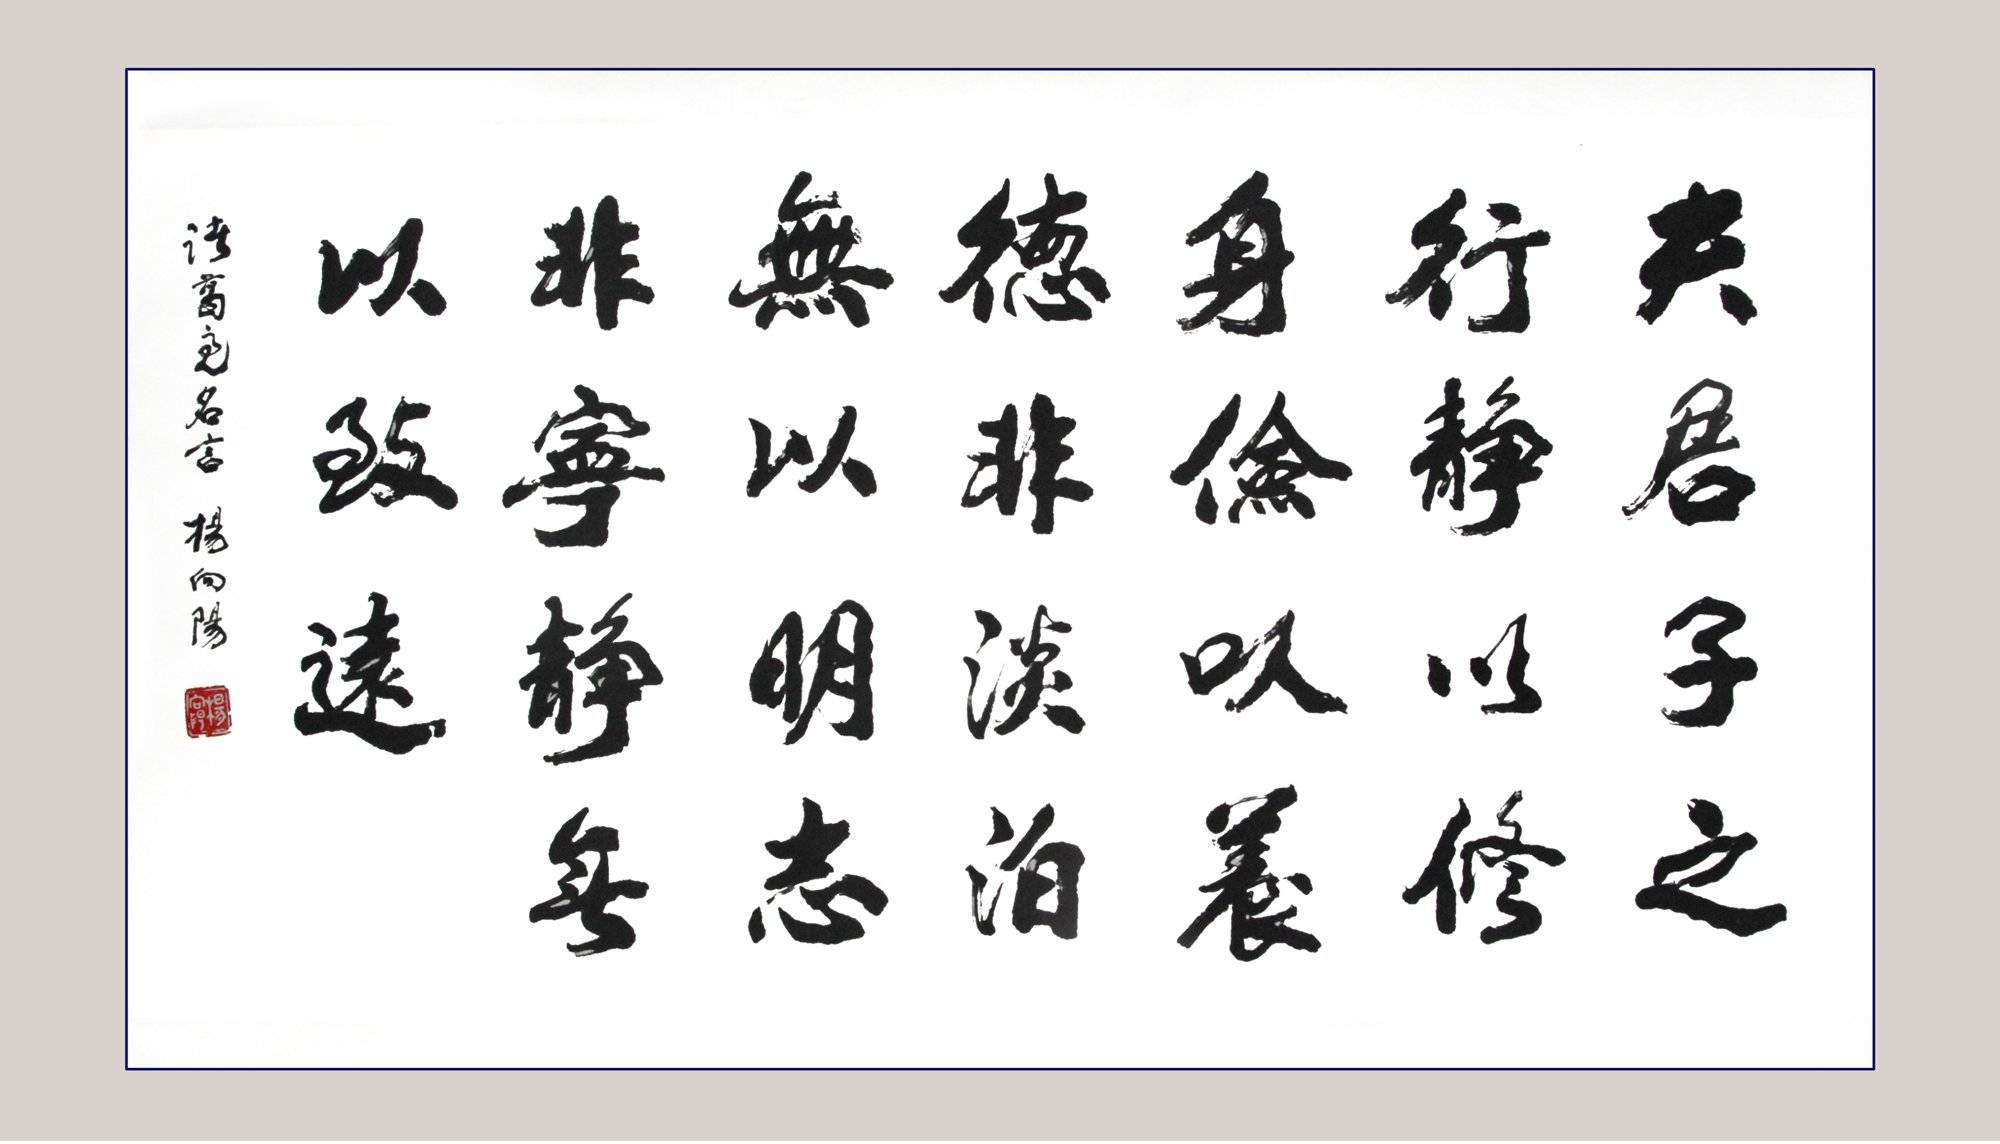 夫君子之
行靜以修
身儉以養
德非淡泊
無以明志
非寧靜無
以致遠
諸葛亮名言 楊向陽
楊向陽